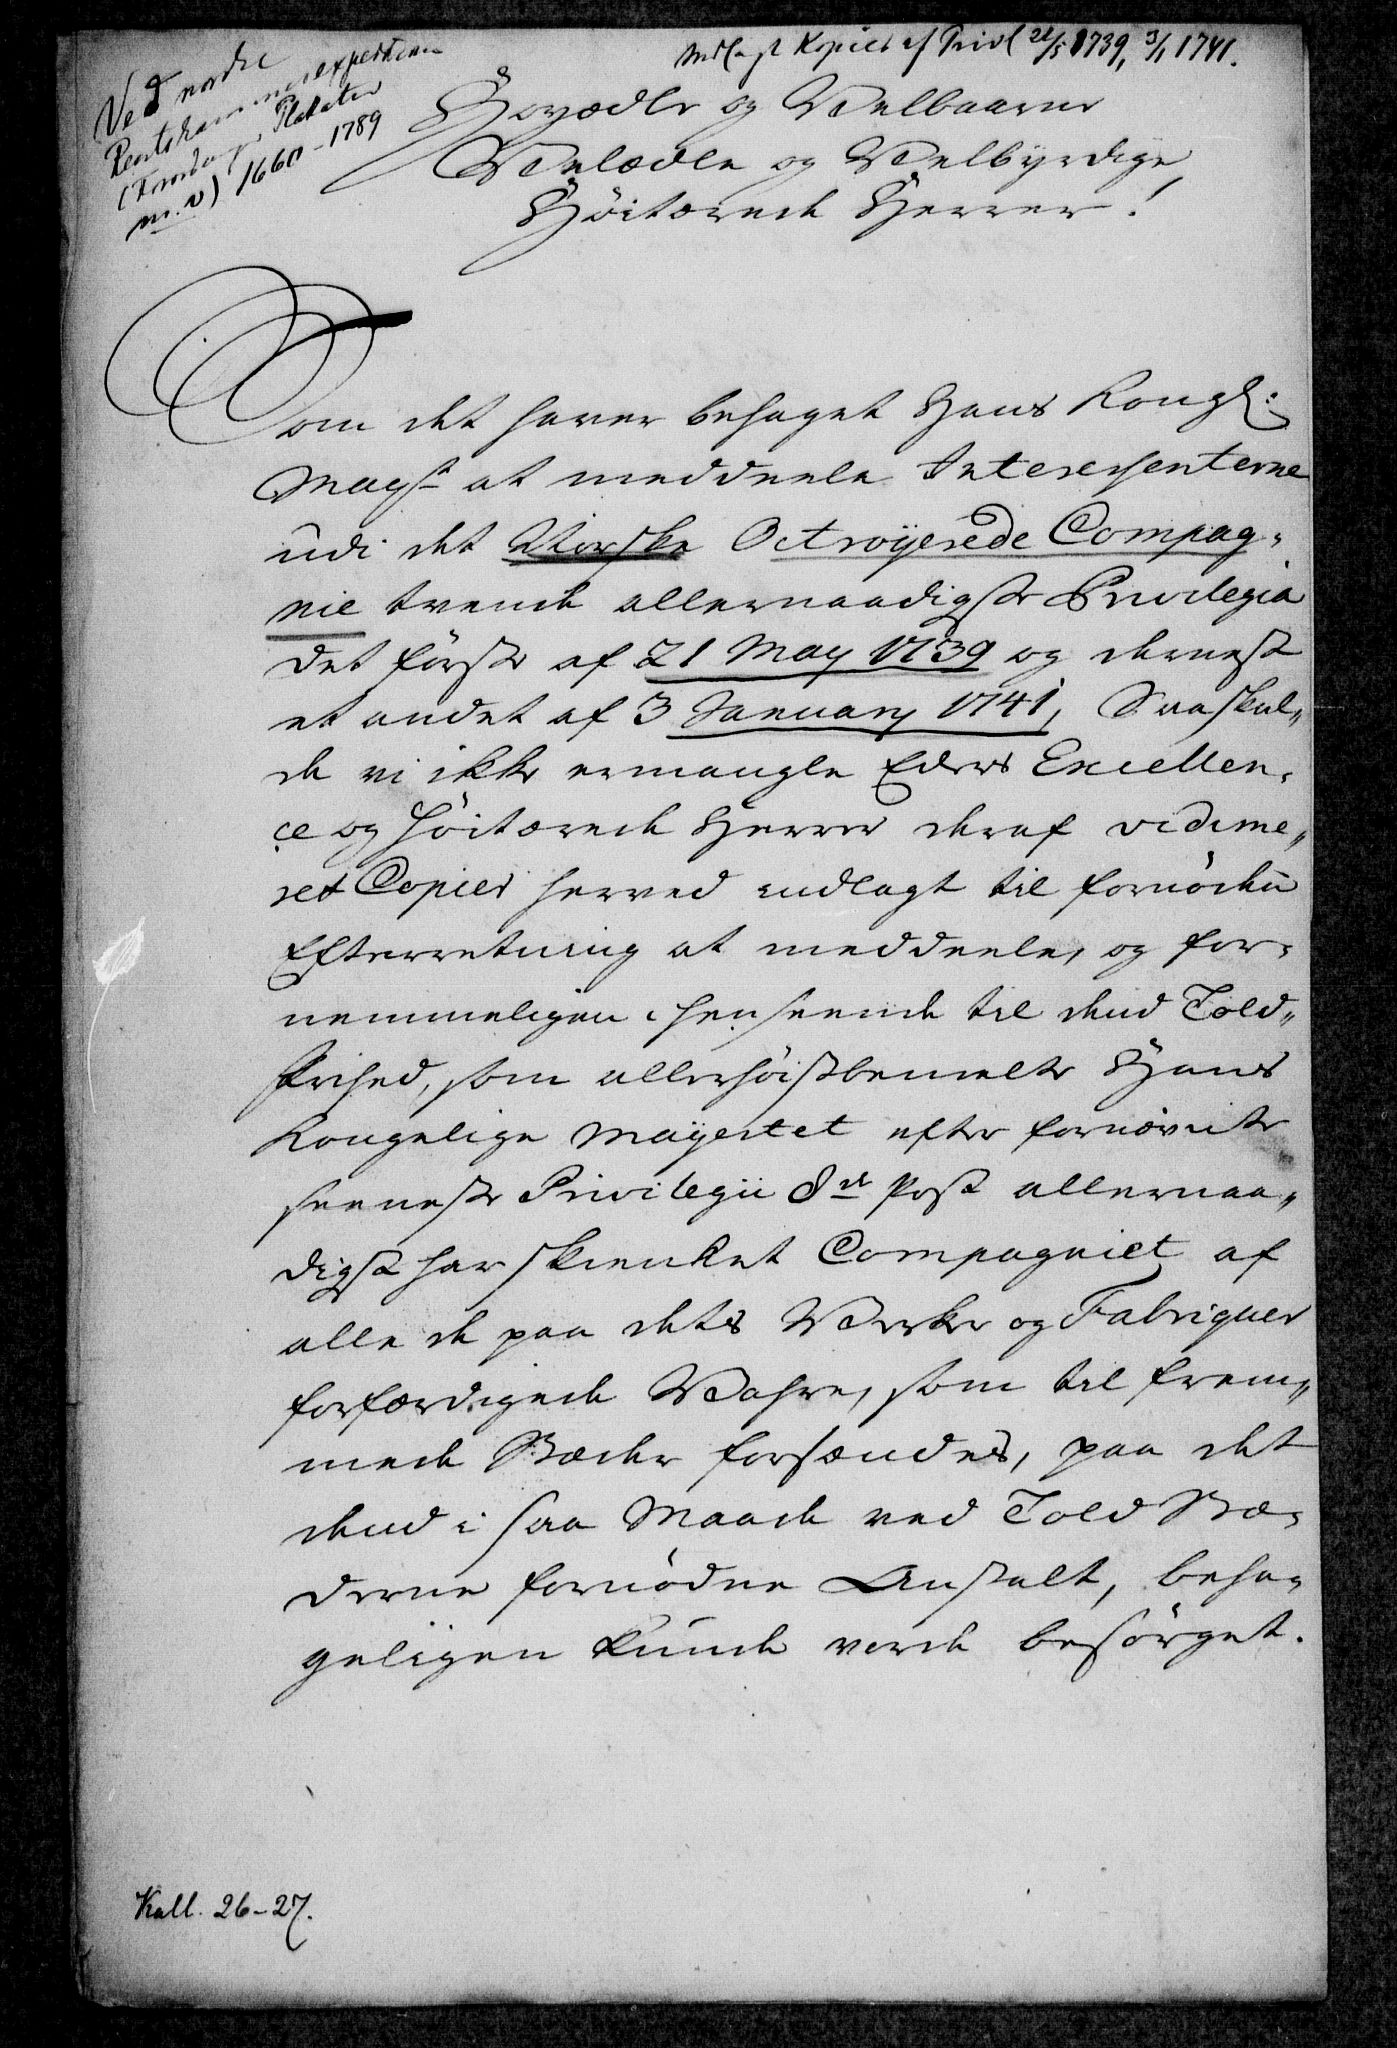 Ved nordre
Rentekammerexpedition
(Forordninger, Plakater
m.v) 1660-1789
Indlagt Kopier af Privl 21/5 1739, 3/1 1741.
Høyædle og Velbaarne
Velædle og Velbyrdige,
Høitærede Herrer!
Som det haver behaget Hans Kongl:
Mayst at meddeele Interessenterne
udi det Norske Octroÿerede Compag-
nie tvende allernaadigste Privilegia
det første af 21 May 1739 og dernest
et andet af 3 January 1741, Saa skul-
de vi ikke ermangle Eders Excellen-
ce og høitærede Herrer deraf vidime-
ret Copier herved indlagt til fornöden
Efterretning at meddeele, og for-
nemmeligen i henseende til dend Told-
Frihed, som allerhöistbemelte Hans
Kongelige Maÿestet efter
seeneste Privilegii 8de Post allernaa-
digst har skienket Compagniet af
alle de paa dets Værker og Fabriquer
forfærdigede Vahre, som til frem-
mede Stæder forsændes, paa det
dend i saa Maade ved Told Stæ-
derne fornödne Anstalt, beha-
geligen kunde vorde besörget.
Kall. 26-27.